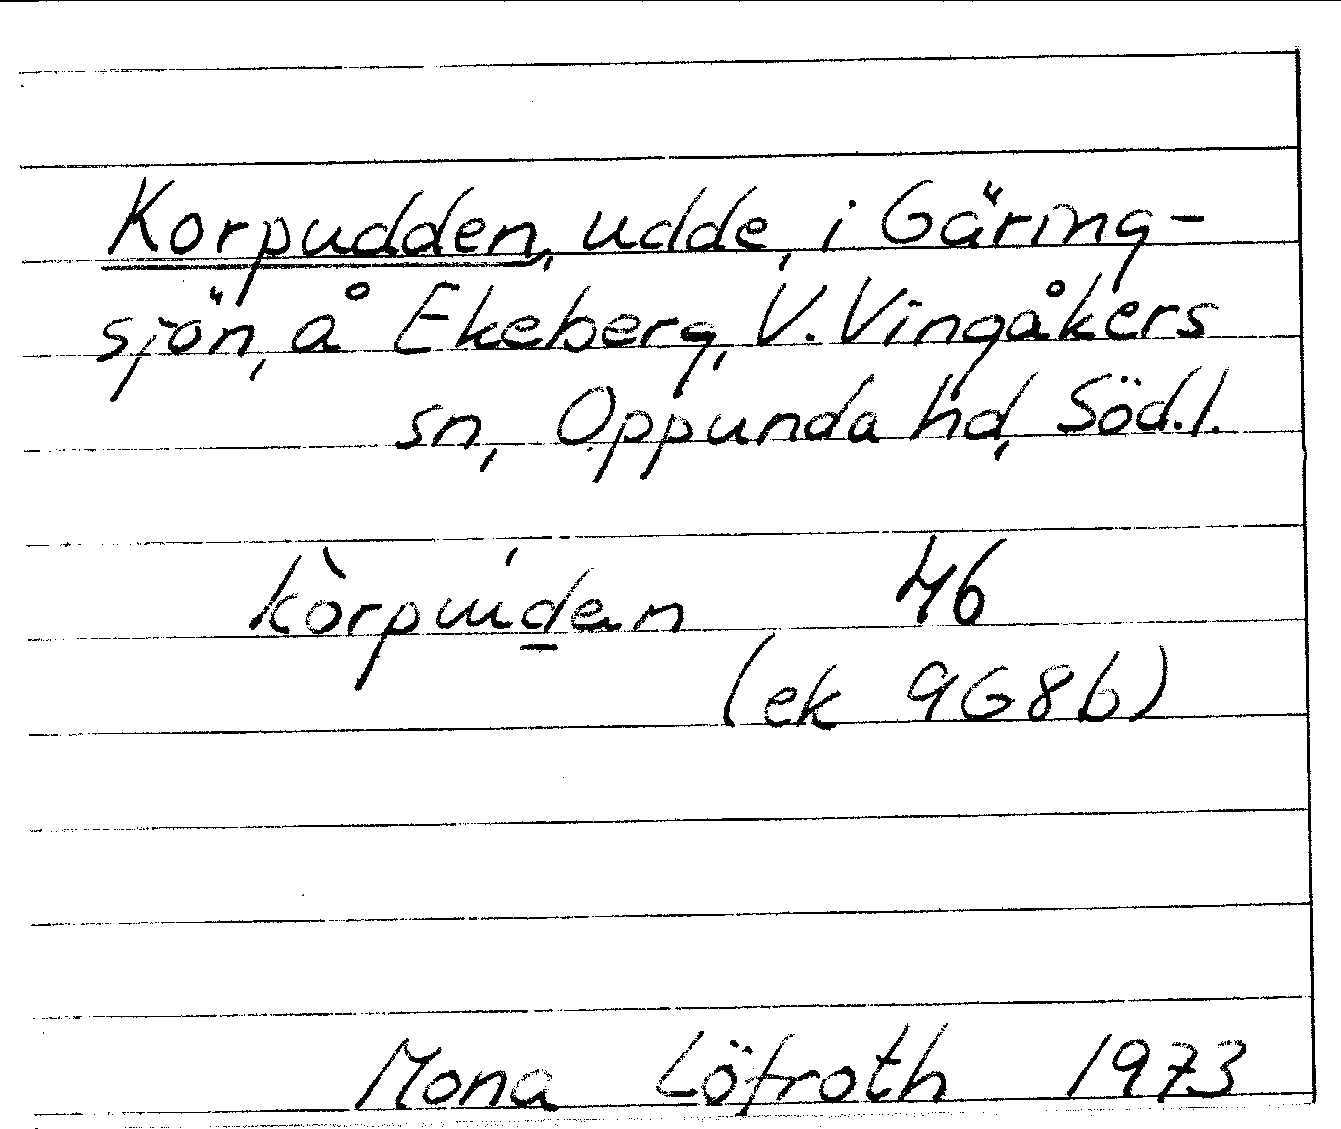 Korpudden, udde, i Gäring-
sjön, å Ekeberg, V. Vingåkers
sn, Oppunda hd, Söd.l.
46
(ek 9G8b)
Mona Löfroth 1973